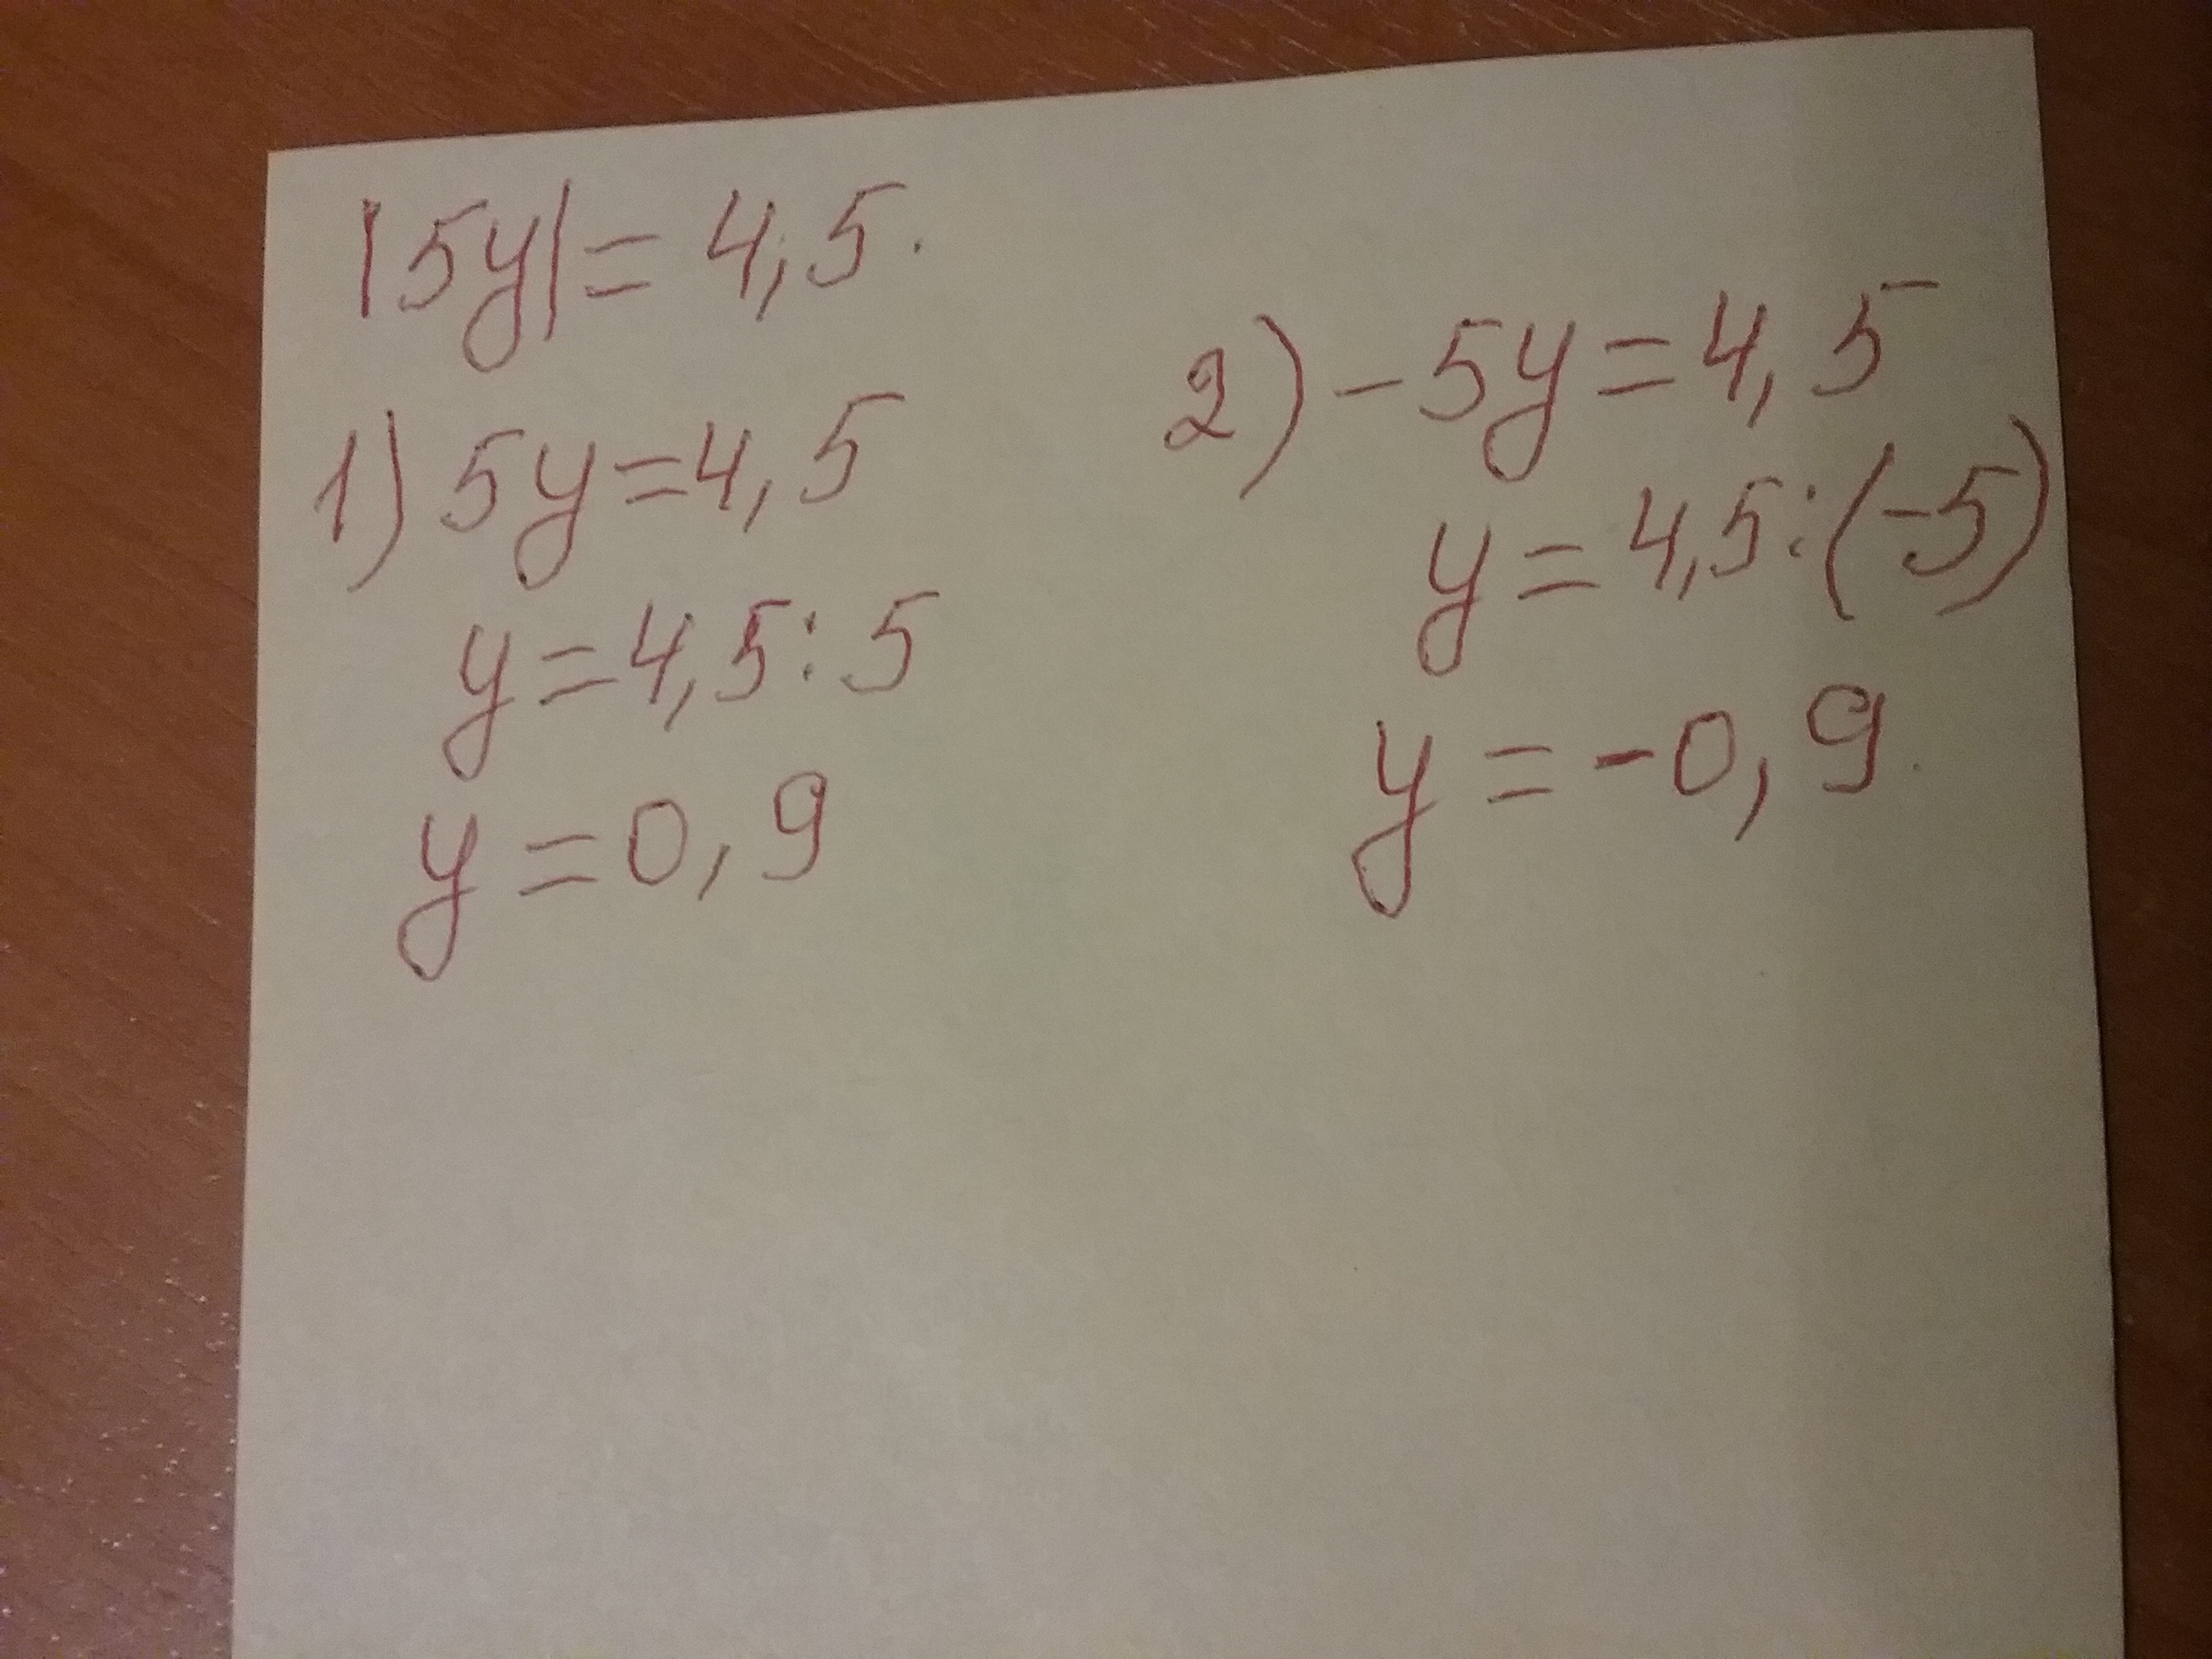 |5y| = 4,5.
1) 5y=4,5
y=4,5:5
y=0,9
2) -5y=4,5
y=4,5:(-5)
y=-0,9.